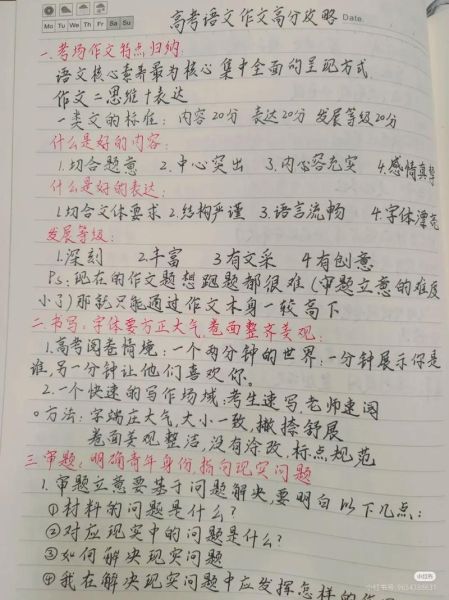 高考语文作文高分攻略 Date.
Mo Tu We Th Fr Sa Su
一.考场作文特点归纳:
语文核心素养最为核心 集中全面的呈现方式.
作文二思维十表达
一类文的标准: 内容20分 表达20分 发展等级20分
什么是好的内容:
1.切合题意 2.中心突出 3.内容充实 4.感情真挚
什么是好的表达:
1切合文体要求 2.结构严谨 3.语言流畅 4.字体漂亮
发展等级:
1.深刻 2.丰富 3有文采 4有创意
Ps:现在的作文题想跑题都很难(审题立意的难度
小了)那就只能通过作文本身一较高下
二.书写:字体要方正大气,卷面整齐美观:
1.高考阅卷情境:一个两分钟的世界:一分钟展示你是
谁,另一分钟让他们喜欢你。
2.一个快速的写作场域:考生速写,老师速阅
。方法:字端庄大气,大小一致,撇捺舒展
卷面美观整洁,没有涂改,标点规范
三.审题:明确青年身份,指向现实问题
1.审题立意要基于问题解决,要明白以下几点:
①材料的问题是什么?
②对应现实中的问题是什么?
③如何解决现实问题
④我在解决现实问题中应发挥怎样的作
小红书
小红书号:9614786631